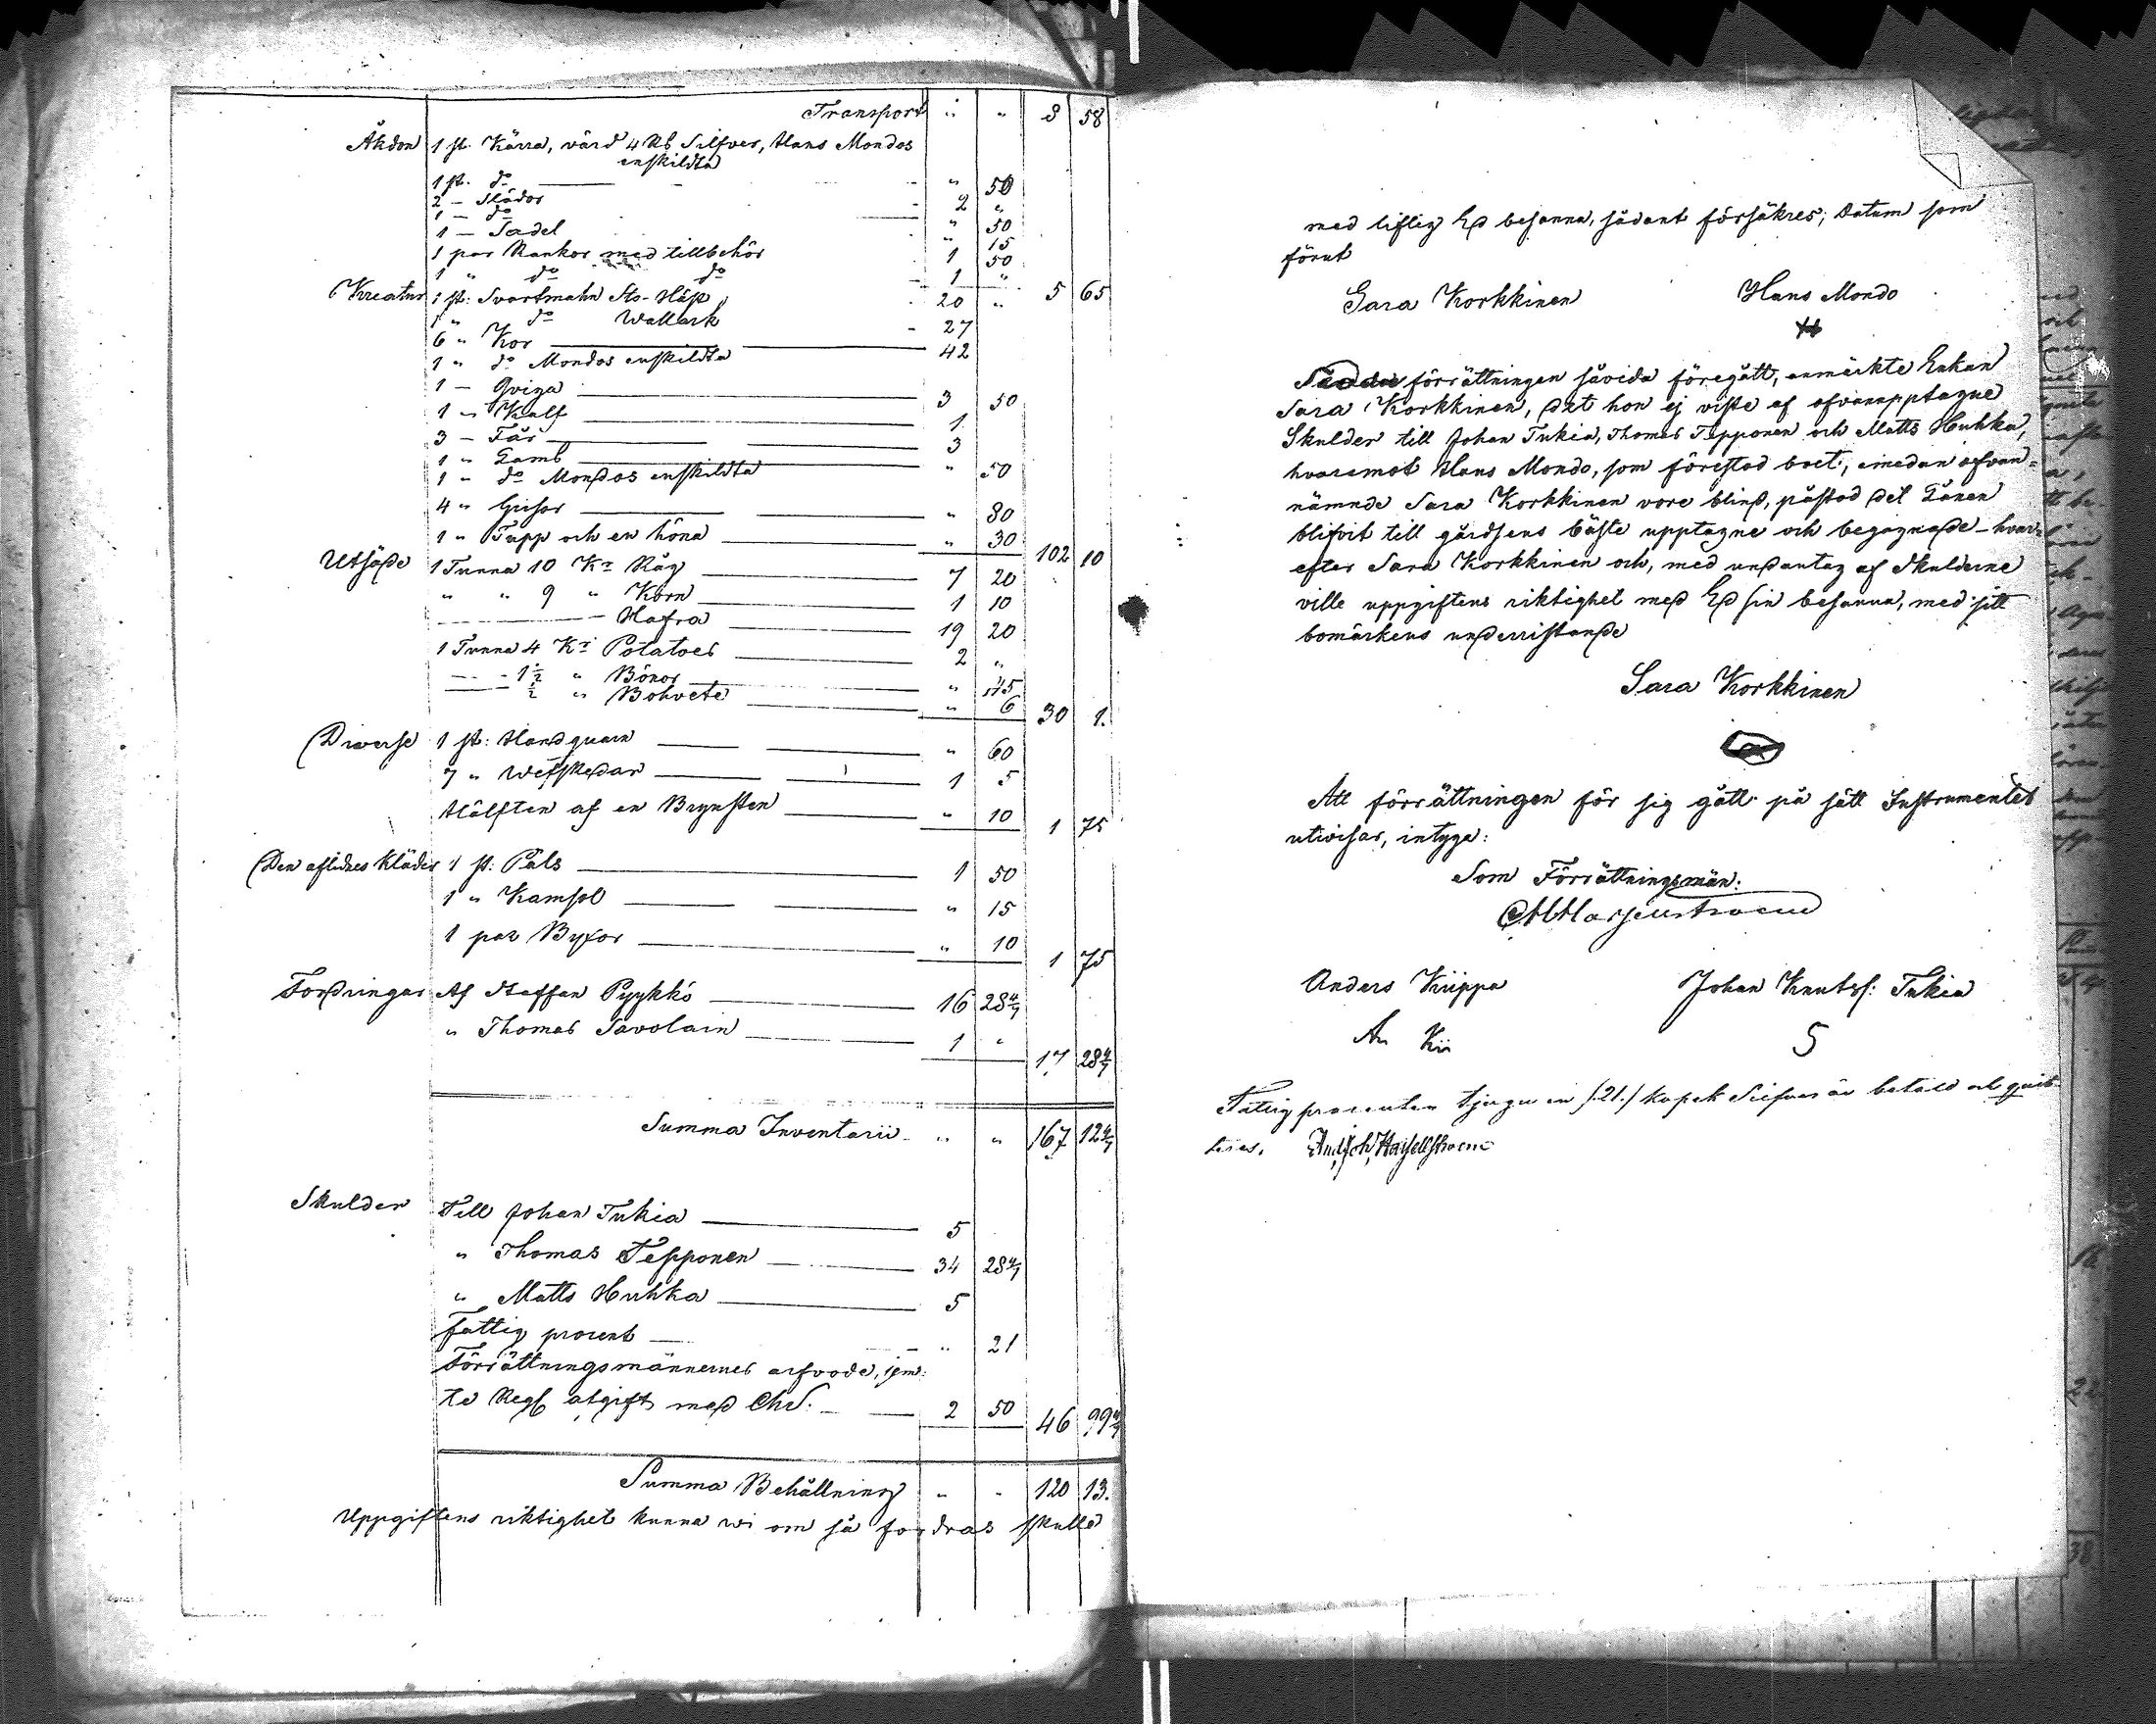 Transport " " 8 58
Åkdon 1 st. Kärra, värd 4 Rb Silfver, Hans Mondos
enskildta
1 st. do " 50
2 — Slädor 2 "
1 — do " 50
1 — Sadel " 15
1 par Rankor med tillbehör 1 50
1 " do do 1 " 5 65
Kreatur 1 st: Svartmahn Sto-Häst 20 "
1 " do Wallack 27
6 " Kor 42
1 " do Mondos enskildta
1 — Qviga 3 50
1 " Kalf 1
3 — Får 3
1 " Lamb " 50
1 " do Mondos enskildta
4 " Grisar " 80
1 " Tupp och en höna " 30 102 10
Utsäde 1 Tunna 10 Kr Råg 7 20
" " 9 " Korn 1 10
Hafra 19 20
1 Tunna 4 Kr Potatoes 2 "
— - 1½ " Bönor " 45
— ½ " Bohvete " 6 30 1.
Diverse 1 st: Handquarn " 60
7 " Wefskedar 1 5
Hälften af en Brynsten " 10 1 75
Den aflidnes Kläder 1 st: Päls 1 50
1 " Kamsol " 15
1 par Byxor " 10 1 75
Fordringar Af Staffan Pyykkö 16 28 4/7
" Thomas Savolain 1 " 17 28 4/7
Summa Inventarii " " 167 12 4/7
Skulder Till Johan Tukia 5
" Thomas Tepponen 34 28 4/7
" Matts Huhka 5
Fattig procent " 21
Förrättningsmännernes arfvode, jem:
te Regl afgift med Chs. 2 50 46 99 4/7
Summa Behållning " " 120 13.
Uppgiftens riktighet kunna wi om så fordras skulle
med liflig Ed besanna, sådant försäkres; Datum som
förut
Sara Korkkinen Hans Mondo
Sedan förrättningen såvida föregått, anmärkte Enkan
Sara Korkkinen, det hon ej viste af ofvanupptagne
Skulder till Johan Tukia, Thomas Tepponen och Matts Huhka,
hvaremot Hans Mondo, som förestod boet, emedan ofvan=
nämnde Sara Korkkinen vore blind, påstod det Lånen
blifvit till gårdsens bäste upptagne och begagnade — hvar=
efter Sara Korkkinen och, med undantag af Skulderne
ville uppgiftens riktighet med Ed sin besanna, med sitt
bomärkens underristande
Sara Korkkinen
Att förrättningen för sig gått på sätt Instrumentet
utvisar, intyga:
Som Förrättningsmän:
Anders Kiippa Johan Knutss: Tukia
An Kii S
Fattigprocenten tjugu en /21./ kopek Silfver är betald och quit-
teras.